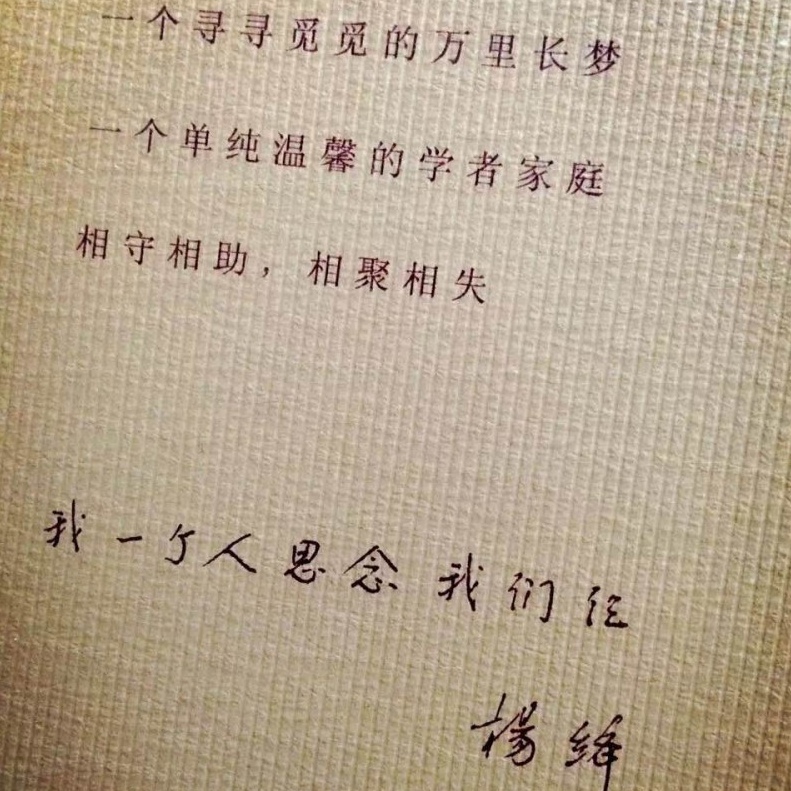 一个寻寻觅觅的万里长梦
一个单纯温馨的学者家庭
相守相助，相聚相失
我一个人思念我们仨
楊绛